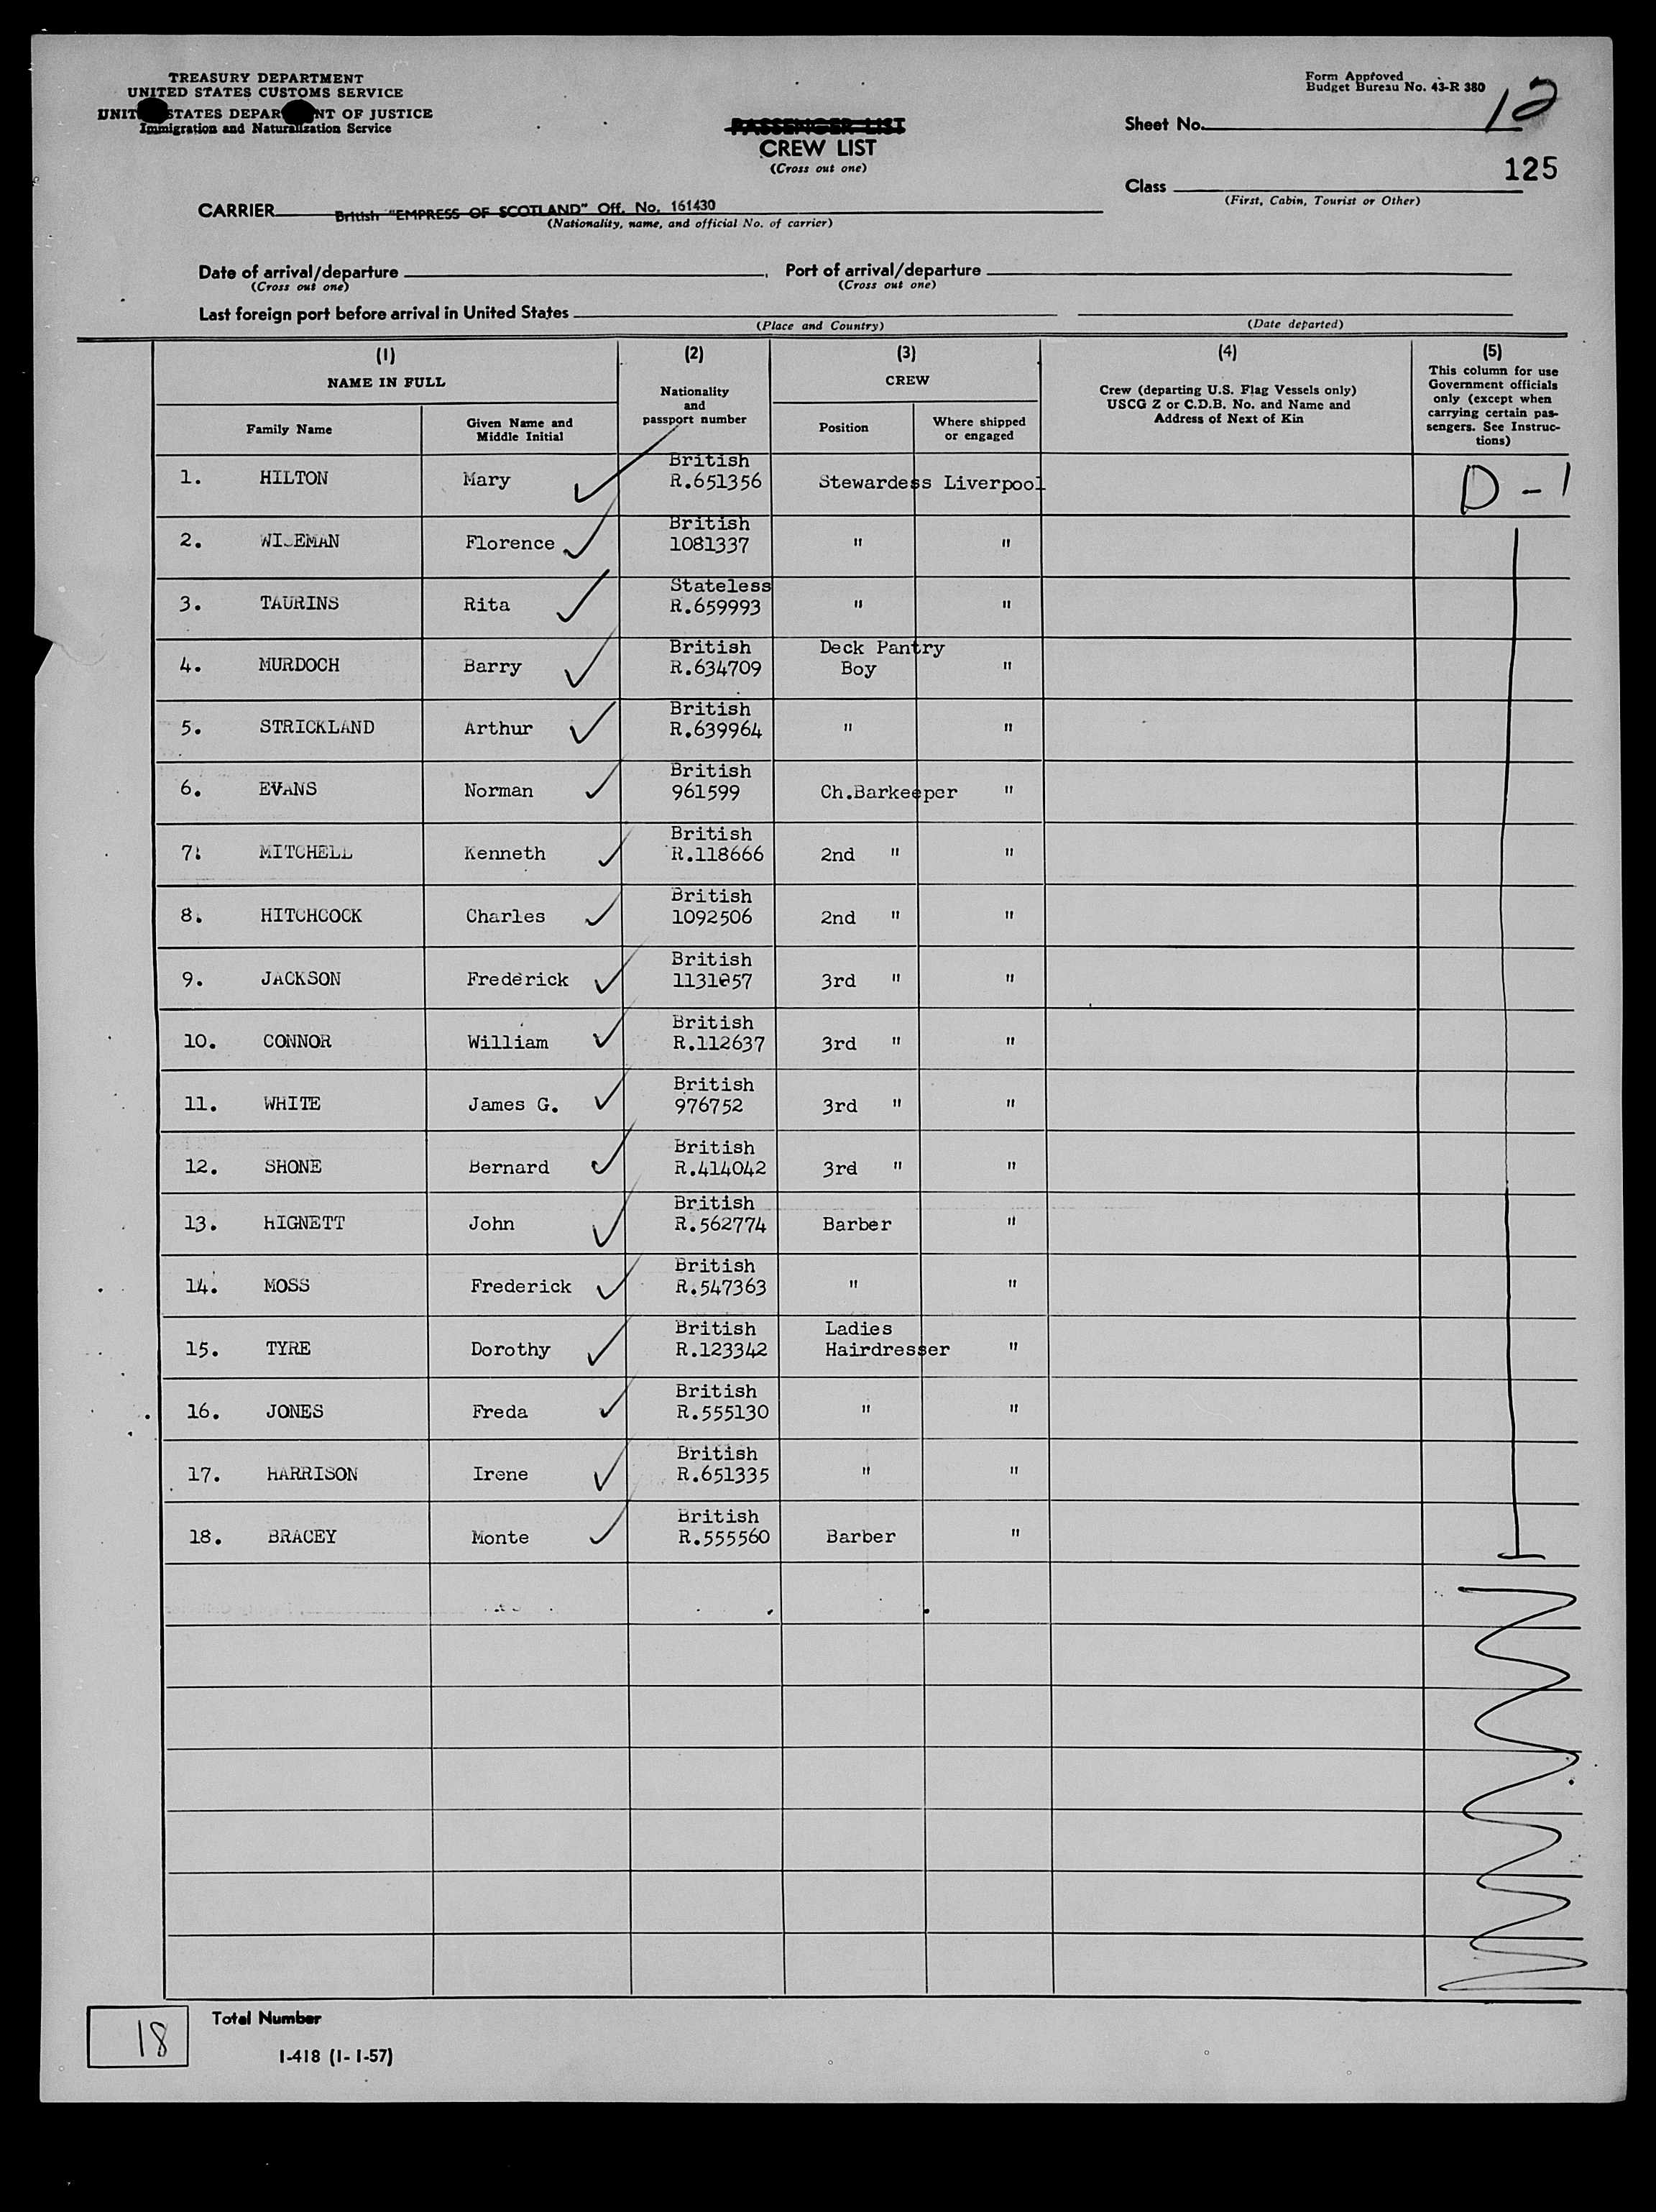 TREASURY DEPARTMENT
UNITED STATES CUSTOMS SERVICE
UNIT STATES DEPAR NT OF JUSTICE
Immigration and Naturalization Service
PASSENGER LIST
CREW LIST
(Cross out one)
Form Approved
Budget Bureau No. 43-R 380
Sheet No. 12
125
Class
(First, Cabin, Tourist or Other)
CARRIER British "EMPRESS OF SCOTLAND" Off. No. 161430
(Nationality, name, and official No. of carrier)
Date of arrival/departure , Port of arrival/departure
(Cross out one) (Cross out one)
Last foreign port before arrival in United States
(Place and Country) (Date departed)
(1) (2) (3) (4) (5)
NAME IN FULL
Family Name
Given Name and
Middle Initial
Nationality
and
passport number
CREW
Position
Where shipped
or engaged
Crew (departing U.S. Flag Vessels only)
USCG Z or C.D.B. No. and Name and
Address of Next of Kin
This column for use
Government officials
only (except when
carrying certain pas-
sengers. See Instruc-
tions)
British
1. HILTON Mary R.651356 Stewardess Liverpool D-1
British
2. WI EMAN Florence 1081337 " "
Stateless
3. TAURINS Rita R.659993 " "
British Deck Pantry
4. MURDOCH Barry R.634709 Boy "
British
5. STRICKLAND Arthur R.639964 " "
British
6. EVANS Norman 961599 Ch.Barkeeper "
British
7. MITCHELL Kenneth R.118666 2nd " "
British
8. HITCHCOCK Charles 1092506 2nd " "
British
9. JACKSON Frederick 3rd " "
British
10. CONNOR William R.112637 3rd " "
British
11. WHITE James G. 976752 3rd " "
British
12. SHONE Bernard R.414042 3rd " "
British
13. HIGNETT John R.562774 Barber "
British
14. MOSS Frederick R.547363 " "
British Ladies
15. TYRE Dorothy R.123342 Hairdresser "
British
16. JONES Freda R.555130 " "
British
17. HARRISON Irene R.651335 " "
British
18. BRACEY Monte R.555560 Barber "
18 Total Number
I-418 (1-1-57)